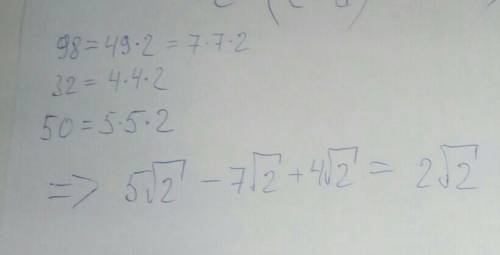 98 = 49·2 = 7·7·2
32 = 4·4·2
50 = 5·5·2
=> 5√2 - 7√2 + 4√2 = 2√2